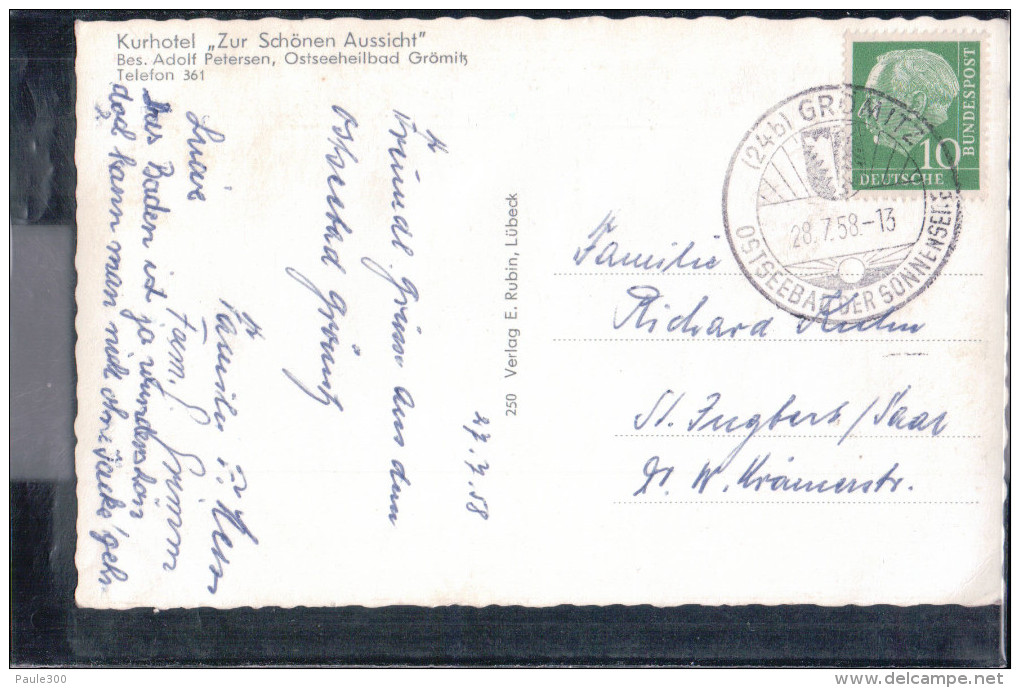 Kurhotel „Zur Schönen Aussicht"
Bes. Adolf Petersen, Ostseeheilbad Grömitz
Telefon 361
27.7.58
Freundl. Grüsse aus dem
Ostseebad Grömitz
Familie
Fam. Grimm
Das Baden ist ja wunderschön
doch kann man nicht ohne Jacke gehn
250 Verlag E. Rubin, Lübeck
BUNDESPOST
10
DEUTSCHE
(24b) GRÖMITZ
28.7.58.-13
OSTSEEBAD DER SONNENSEITE
Familie
Richard
St. Ingbert/Saar
Dr. W. Krämerstr.
Paule300
delcampe.net